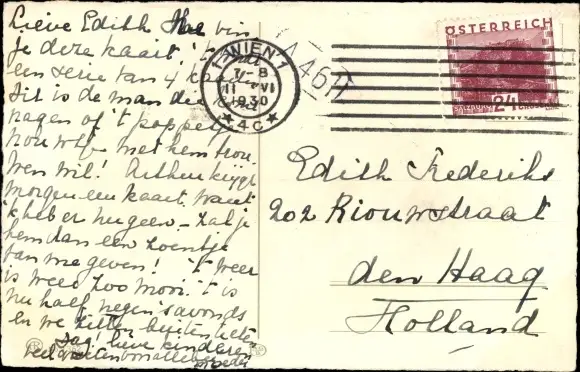 Lieve Edith Hoe vin
je deze kaart!
een serie van 4
Dit is de man die
vragen of 't poppetje
trou
wen wil! Arthur krijgt
morgen een kaart, want
'k heb er nu geen - Zal je
hem dan een zoentje
van me geven! 't weer
is weer zoo mooi. 't is
nu half negen 's avonds
en we zitten buiten te eten
Dag! lieve kinderen
veel groeten van
moeder
1 WIEN 1
V-8
11 VI
1930
★ 4c ★
ÖSTERREICH
SALZBURG
24 GROSCHEN
Edith Frederiks
202 Riouwstraat
den Haag
Holland